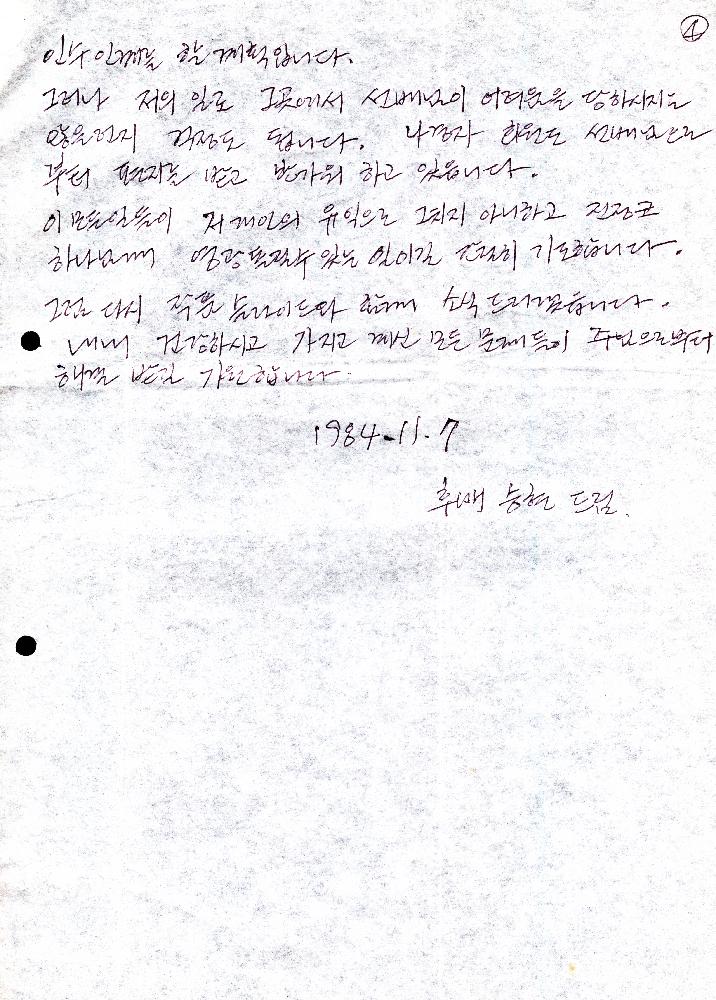 ④
인수인계를 할 계획입니다.
그러나 저의 일로 그곳에서 선배님이 어려움을 당하시지는
않을런지 걱정도 됩니다. 나경자 회원도 선배님으로
부터 편지를 받고 반가워 하고 있읍니다.
이 모든일들이 저 개인의 유익으로 그치지 아니하고 진정코
하나님께 영광돌릴수 있는 일이길 간절히 기도합니다.
그럼 다시 작품 슬라이드와 함께 소식 드리겠읍니다.
내내 건강하시고 가지고 계신 모든 문제들이 주님으로부터
해결 받길 기원합니다.
1984-11-7
후배 능현 드림.